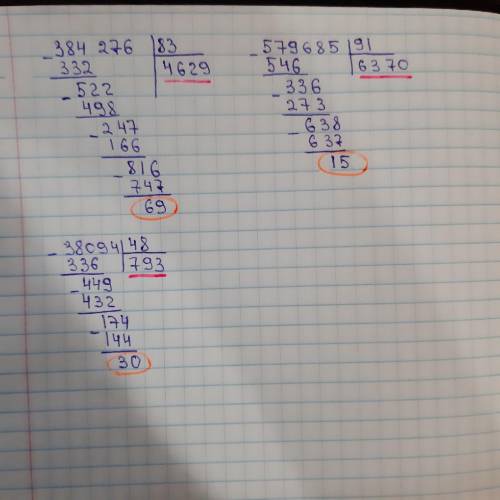 - 384 276 | 83
332 | 4629
- 522
498
- 247
166
- 816
747
69
- 579685 | 91
546 | 6370
- 336
273
- 638
637
15
- 38094 | 48
336 | 793
- 449
432
- 174
144
30